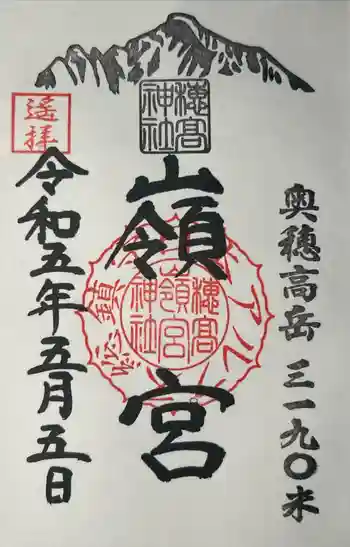 奥穂高岳 三一九〇米
穂高
神社
嶺宮
穂高
嶺宮
神社
遥拝
令和五年五月五日